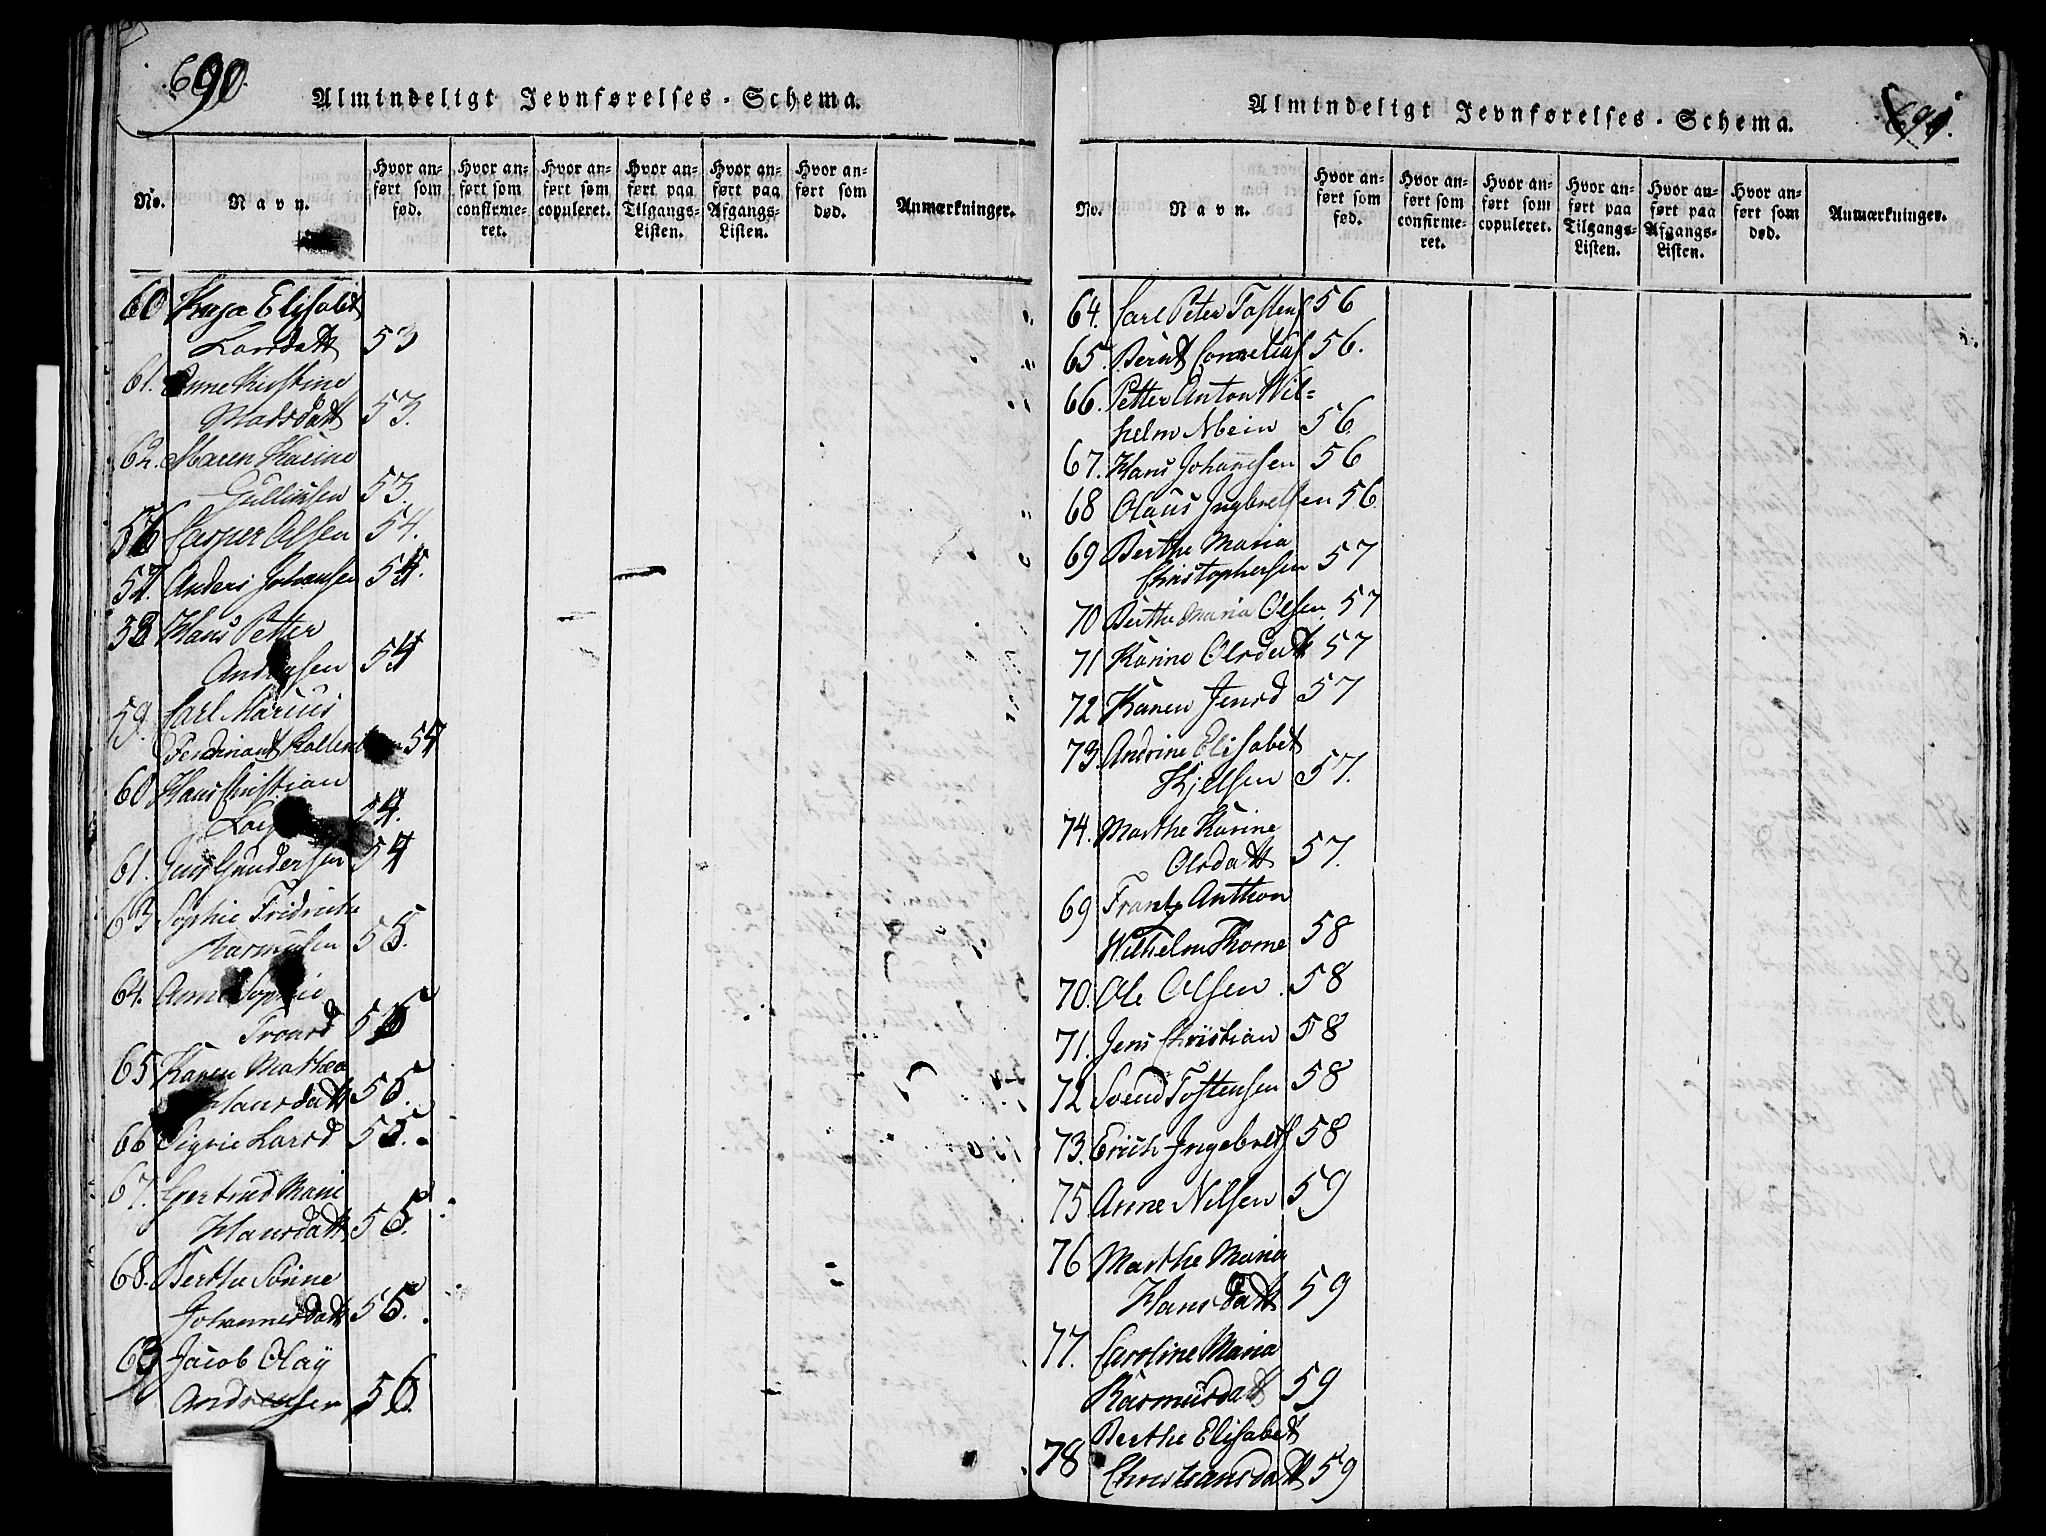 690.
Almindeligt Jevnførelses-Schema.
No.
Navn.
Hvor an-
ført som
fød.
Hvor an-
ført som
confirme-
ret.
Hvor an-
ført som
copuleret.
Hvor an-
ført paa
Tilgangs-
Listen.
Hvor an-
ført paa
Afgangs-
Listen.
Hvor an-
ført som
død.
Anmærkninger.
60 Kaja Elisabet
Larsdatt 53
61. Anne Kirstine
Madsdatt 53.
62. Maren Karine
Gullinsen 53.
56 Casper Olsen 54.
57. Anders Johansen 54.
58 Hans Petter
Andreasen 54
59. Carl Marius
Ferdinant 54
60 Hans Christian
54.
61. Jens Gundersen 54
63 Sophie Fridricke
Rasmusen 55.
64. Anne Sophie
Tronsd 55
65 Karen Mathea
Hansdatt 55.
66 Sigrie Larsd 55.
67. Gertrud Marie
Hansdatt 55.
68. Berthe Sørine
Johannesdatt 55.
63 Jacob Olay
Andreasen 56.
691.
Almindeligt Jevnførelses-Schema.
No.
Navn.
Hvor an-
ført som
fød.
Hvor an-
ført som
confirme-
ret.
Hvor an-
ført som
copuleret.
Hvor an-
ført paa
Tilgangs-
Listen.
Hvor an-
ført paa
Afgangs-
Listen.
Hvor an-
ført som
død.
Anmærkninger.
64. Carl Peter Tostens 56
65. Bernt Cornelius 56.
66. Petter Anton Wil-
helm 56.
67. Hans Johannesen 56
68 Olaus Ingbretsen 56
69 Berthe Maria
Christophersen 57
70 Berthe Maria Olsen 57
71 Karine Olsdatt 57
72 Karen Jensd 57
73. Andrine Elisabet
Kjelsen 57.
74. Marthe Karine
Olsdatt 57.
69 Frantz Anthon
Wilhelm Thorne 58
70. Ole Olsen 58
71. Jens Christian 58
72 Svend Tostensen 58
73. Erich Ingebrets 58
75. Anne Nilsen 59
76 Marthe Maria
Hansdatt 59
77. Caroline Maria
Rasmusdatt 59
78 Berthe Elisabet
Christiansdatt 59